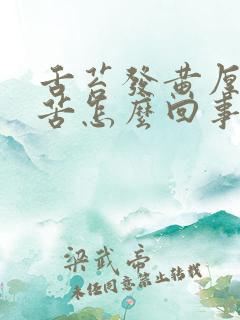 舌苔發黃厚
苦怎麼回事
梁武帝
未经同意禁止转载